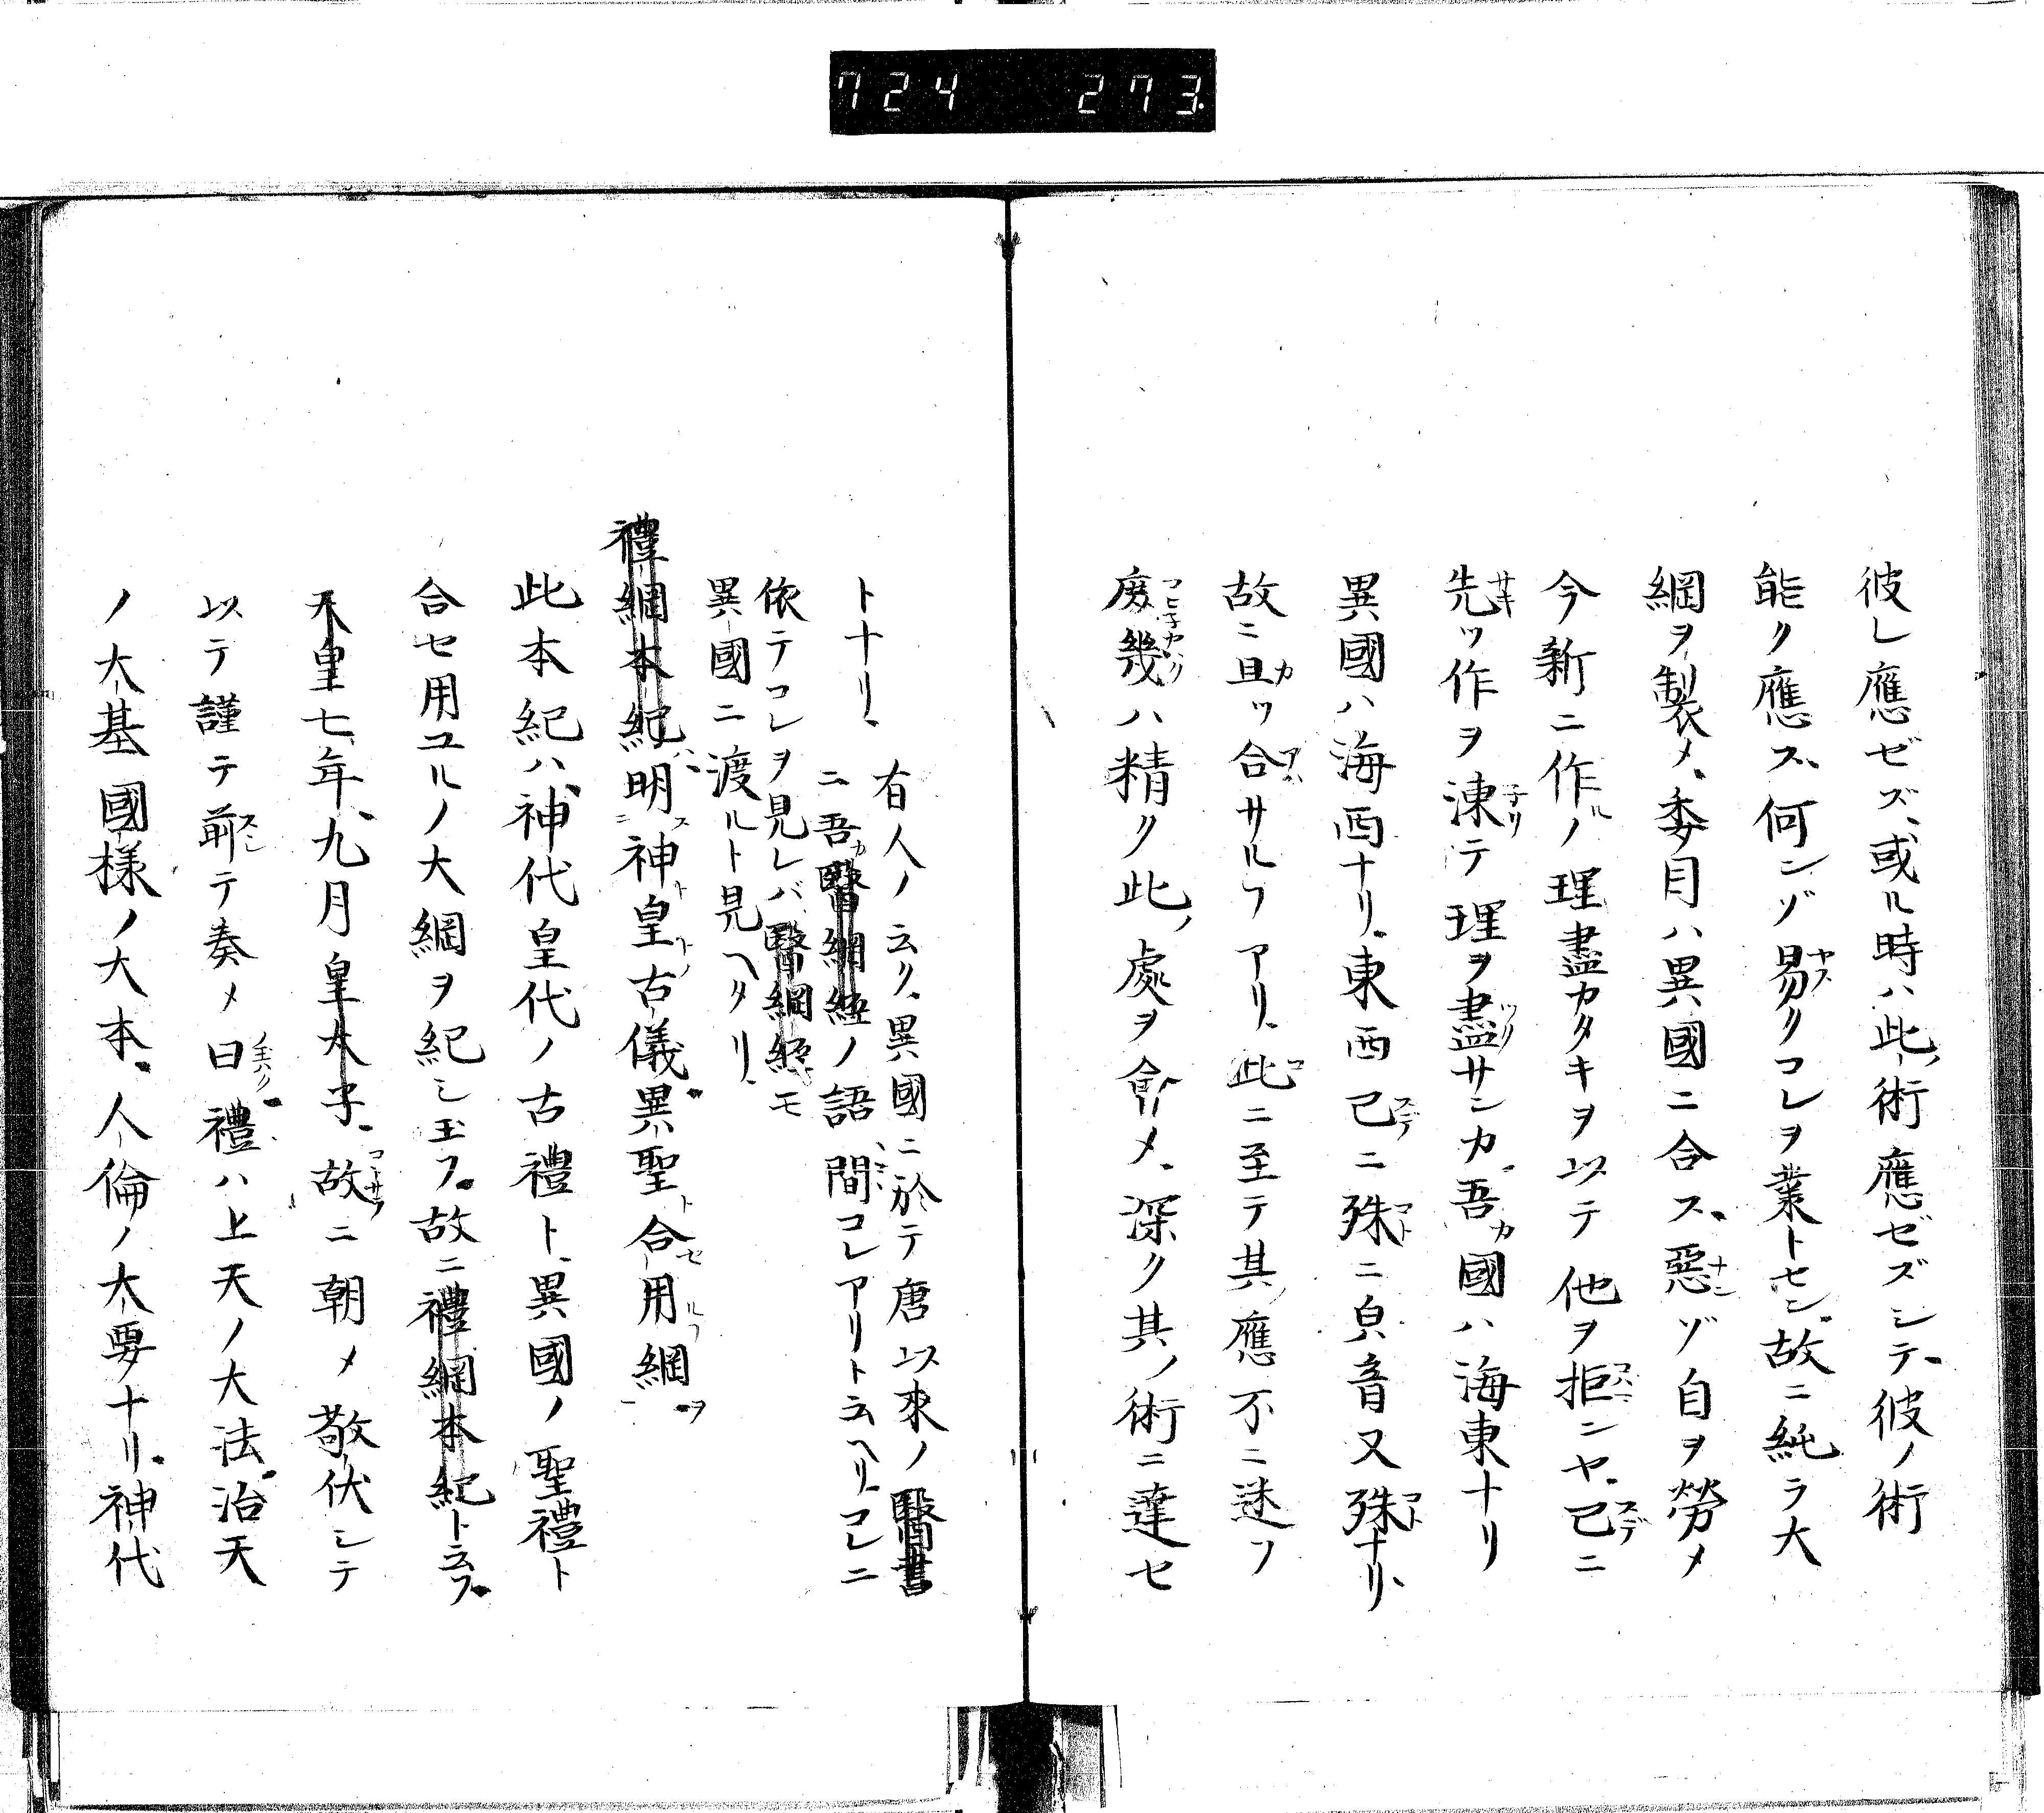 724 273
彼レ應ゼズ、或ル時ハ此ノ術應ゼズシテ、彼ノ術
能ク應ス、何ンゾ易クコレヲ業トセン、故ニ純ラ大
綱ヲ製メ、委目ハ異國ニ合ス、惡ゾ自ヲ勞メ
今新ニ作ルノ理盡カタキヲ以テ他ヲ拒ンヤ、已ニ
先ツ作ヲ湅テ理ヲ盡サンカ、吾カ國ハ海東ナリ
異國ハ海西ナリ、東西已ニ殊ニ㒵音又殊ナリ、
故ニ且ツ合サルフアリ、此ニ至テ其應不ニ迷フ
庻幾ハ精ク此ノ處ヲ會メ、深ク其ノ術ニ達セ
トナリ、
有人ノ云ク、異國ニ於テ唐以來ノ醫書
ニ吾カ醫綱經ノ語間コレアリト云ヘリ、コレニ
依テコレヲ見レバ醫綱經モ
異國ニ渡ルト見ヘタリ、
禮綱本紀ハ、明神皇古儀異聖合用綱
此本紀ハ、神代皇代ノ古禮ト、異國ノ聖禮ト
合セ用ユルノ大綱ヲ紀シ玉フ、故ニ禮綱本紀ト云フ
天皇七年、九月皇太子、故ニ朝メ敬伏シテ
以テ謹テ前テ奏メ曰禮ハ上天ノ大法、治天
ノ大基國樣ノ大本、人倫ノ大要ナリ、神代